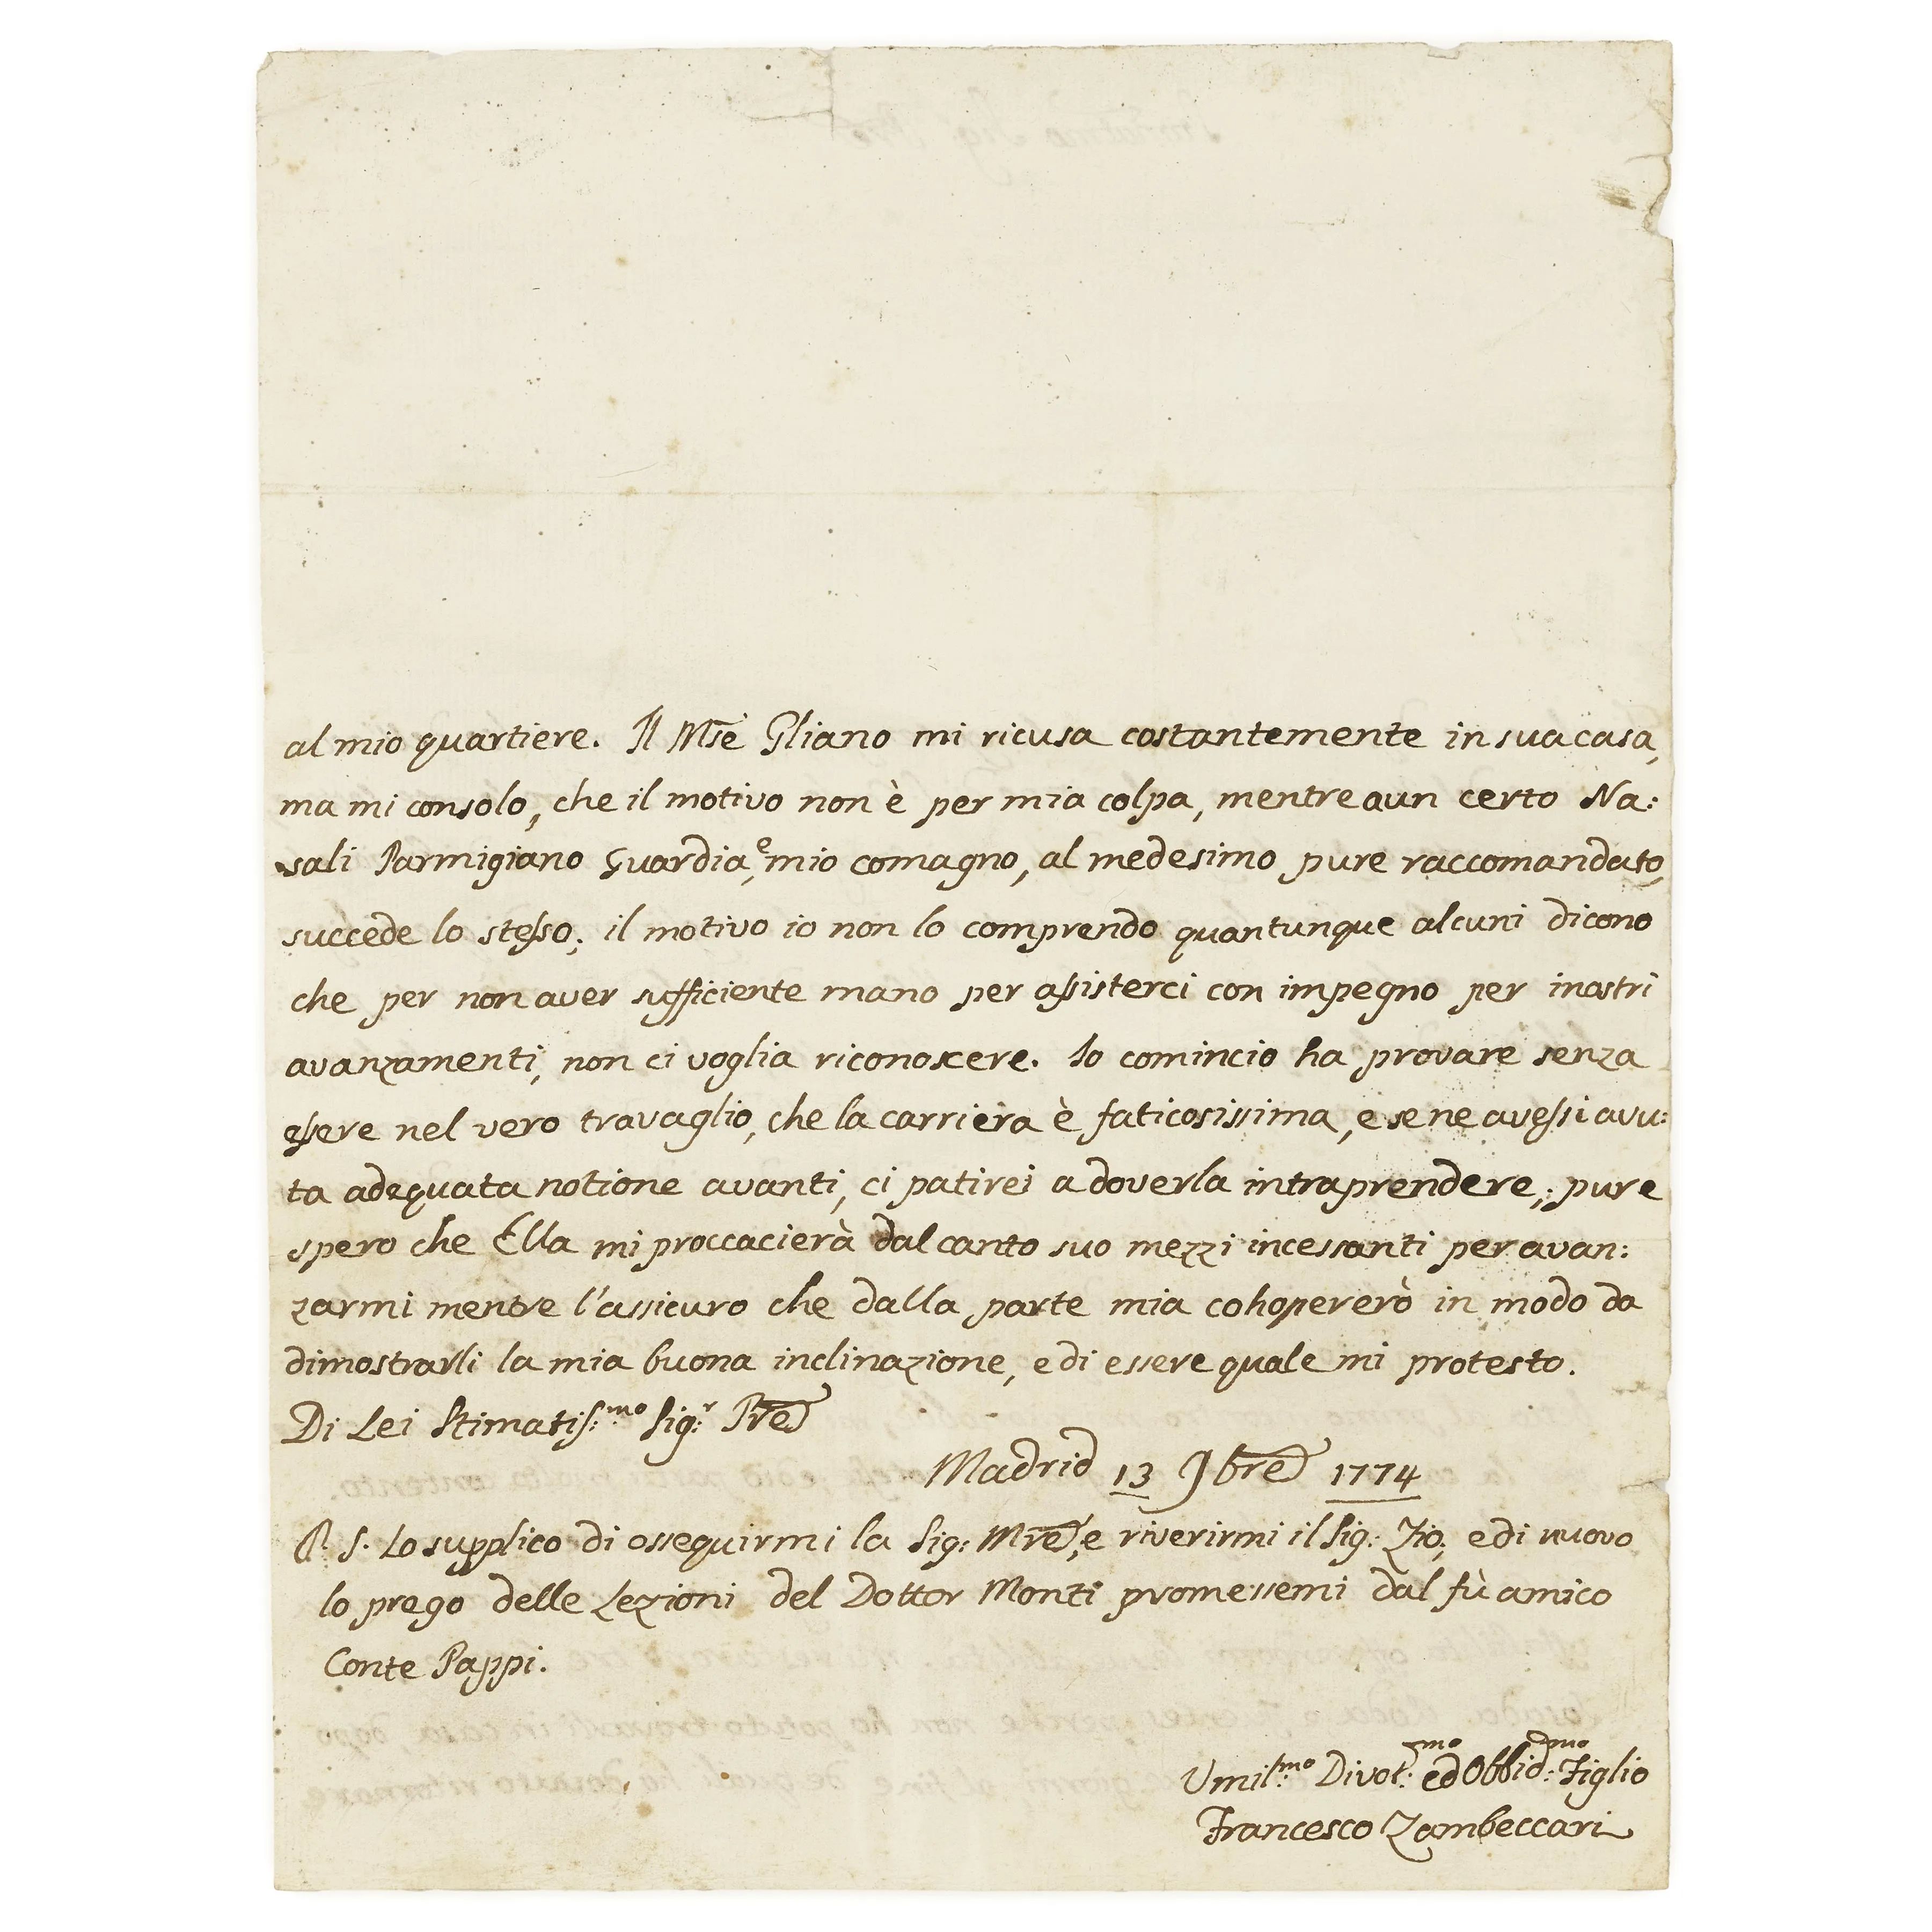 al mio quartiere. Il Mse Gliano mi ricusa costantemente in sua casa,
ma mi consolo, che il motivo non è per mia colpa, mentre a un certo Na:
sali Parmigiano Guardia, e mio comagno, al medesimo pure raccomandato,
succede lo stesso; il motivo io non lo comprendo quantunque alcuni dicono
che per non aver sufficiente mano per assisterci con impegno per i nostri
avanzamenti, non ci voglia riconoscere. Io comincio ha provare senza
essere nel vero travaglio, che la carriera è faticosissima, e se ne avessi avu:
ta adequata notione avanti, ci patirei a doverla intraprendere; pure
spero che Ella mi proccacierà dal canto suo mezzi incessanti per avan:
zarmi mentre l'assicuro che dalla parte mia cohopererò in modo da
dimostrarli la mia buona inclinazione, e di essere quale mi protesto.
Di Lei Stimatiss:mo Sig:r Pre
Madrid 13 9bre 1774
P. S. Lo supplico di ossequirmi la Sig: Mre, e riverirmi il Sig: Zio, e di nuovo
lo prego delle Lezioni del Dottor Monti promessemi dal fù amico
Conte Pappi.
Umil:mo Divot:mo ed Obbid:mo Figlio
Francesco Zambeccari